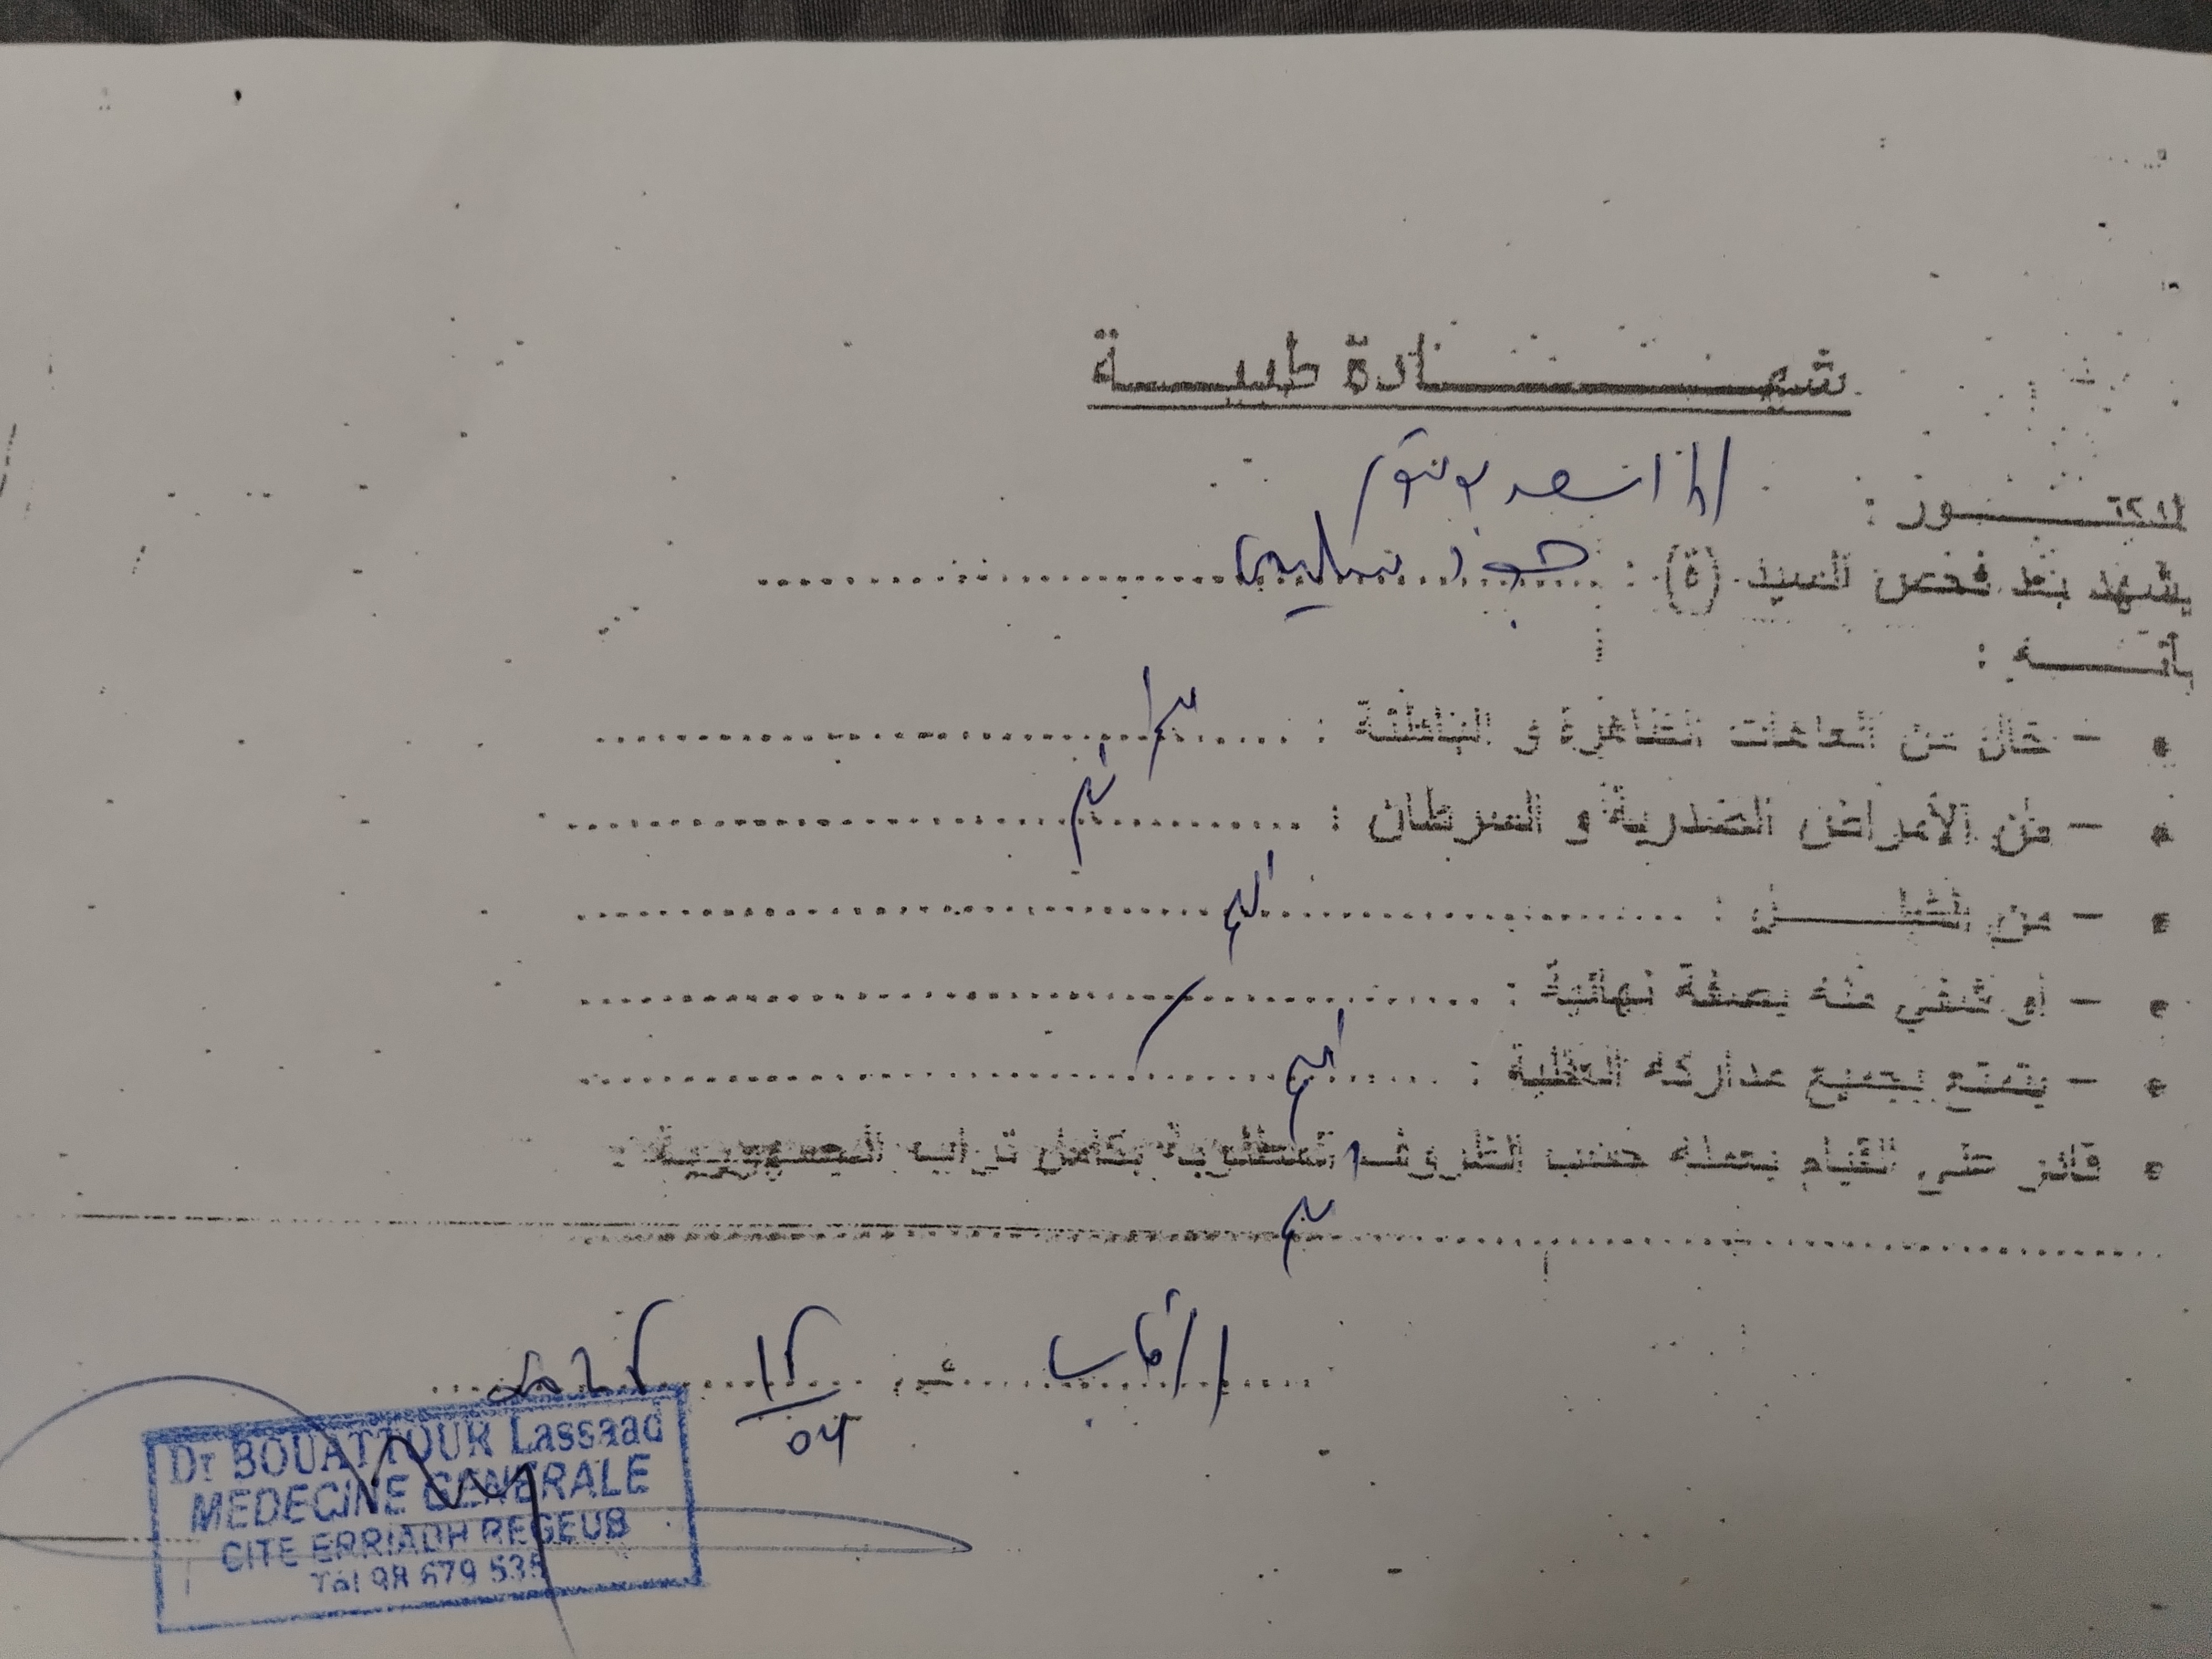 شهـــــــادة طبيـــــة
الدكتـــــور : الأسعد بوعتور
يشهد بعد فحص السيد (ة) : ................
بأنـــــه :
• - خال من العاهات الظاهرة و الباطنة : ................ نعم
• - من الأمراض الصدرية و السرطان : ................ نعم
• - من الشلـــــل : ................ نعم
• - أو شفي منه بصفة نهائية : ................ /
• - يتمتع بجميع مداركه العقلية : ................ نعم
• قادر على القيام بعمله حسب الظروف المطلوبة بكامل تراب الجمهورية :
................ نعم
الرقاب في 12/04
Dr BOUATTOUR Lassaad
MEDECINE GENERALE
CITE ERRIADH REGEUB
Tél 98 679 535